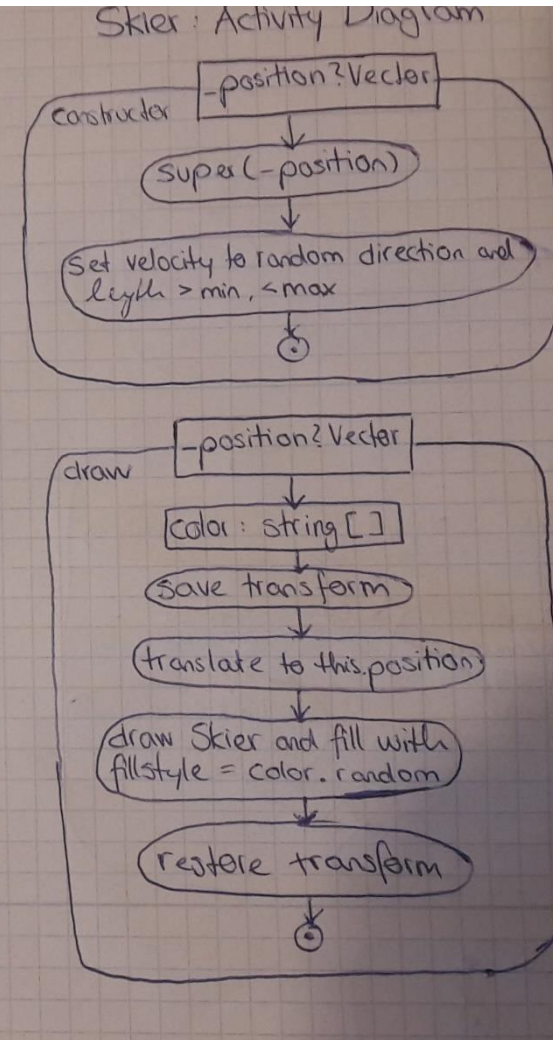 Skier : Activity Diagram
-position?Vector
constructor
super(-position)
Set velocity to random direction and
length > min, < max
-position?Vector
draw
color : string []
save transform
translate to this.position
draw Skier and fill with
fillstyle = color.random
restore transform